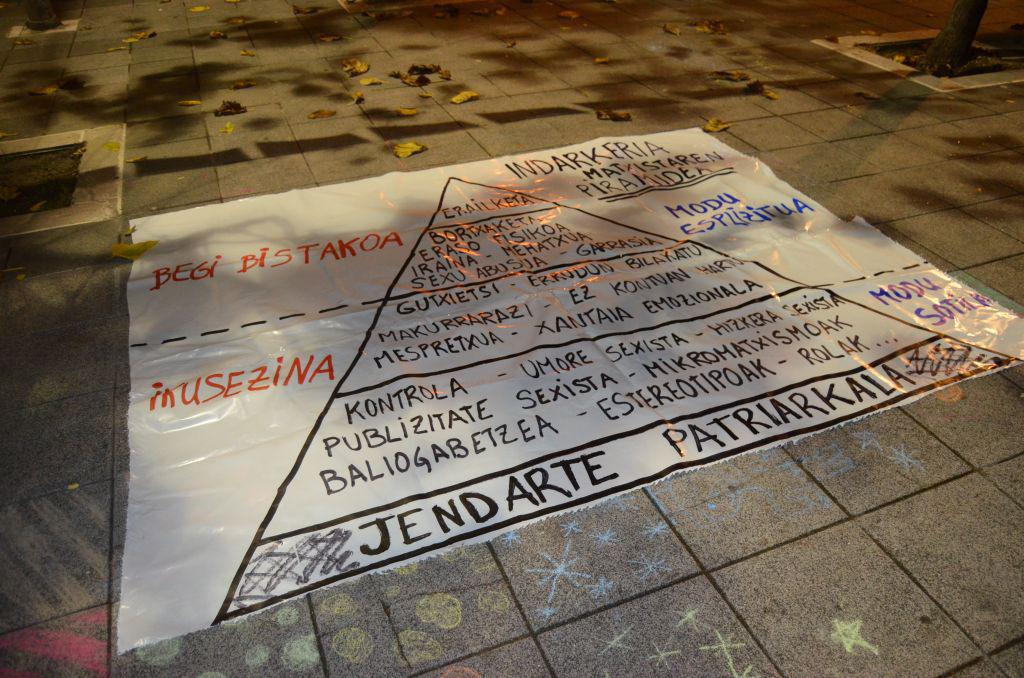 INDARKERIA
MATXISTAREN
PIRAMIDEA
ERAILKETA
BORTXAKETA
ERASO FISIKOA
IRAINA - MEHATXUA
SEXU ABUSUA - GARRASIA
GUTXIETSI - ERKUDUN BILAKATU
MAKURRARAZI EZ KONTUAN HARTU
MESPRETXUA - XANTAIA EMOZIONALA
KONTROLA - UMORE SEXISTA - HIZKERA SEXISTA
PUBLIZITATE SEXISTA - MIKROMATXISMOAK
BALIOGABETZEA - ESTEREOTIPOAK - ROLAK...
JENDARTE PATRIARKALA
BEGI BISTAKOA
IKUSEZINA
MODU
ESPLIZITUA
MODU